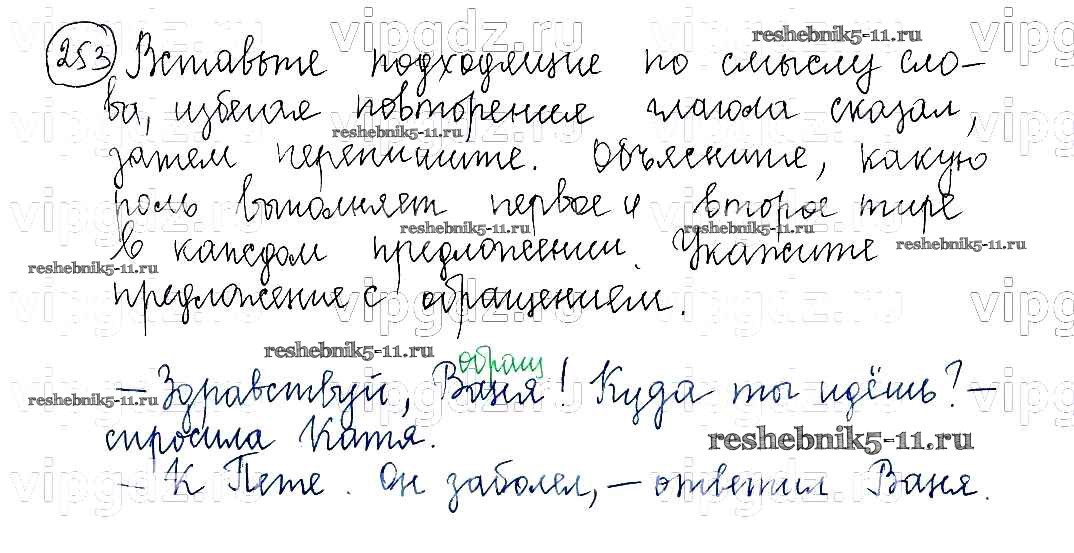 253 Вставьте подходящие по смыслу сло-
ва, избегая повторения глагола сказал,
затем перепишите. Объясните, какую
роль выполняет первое и второе тире
в каждом предложении. Укажите
предложение с обращением.
обращ
— Здравствуй, Ваня! Куда ты идёшь? —
спросила Катя.
— К Пете. Он заболел, — ответил Ваня.
vipgdz.ru
reshebnik5-11.ru